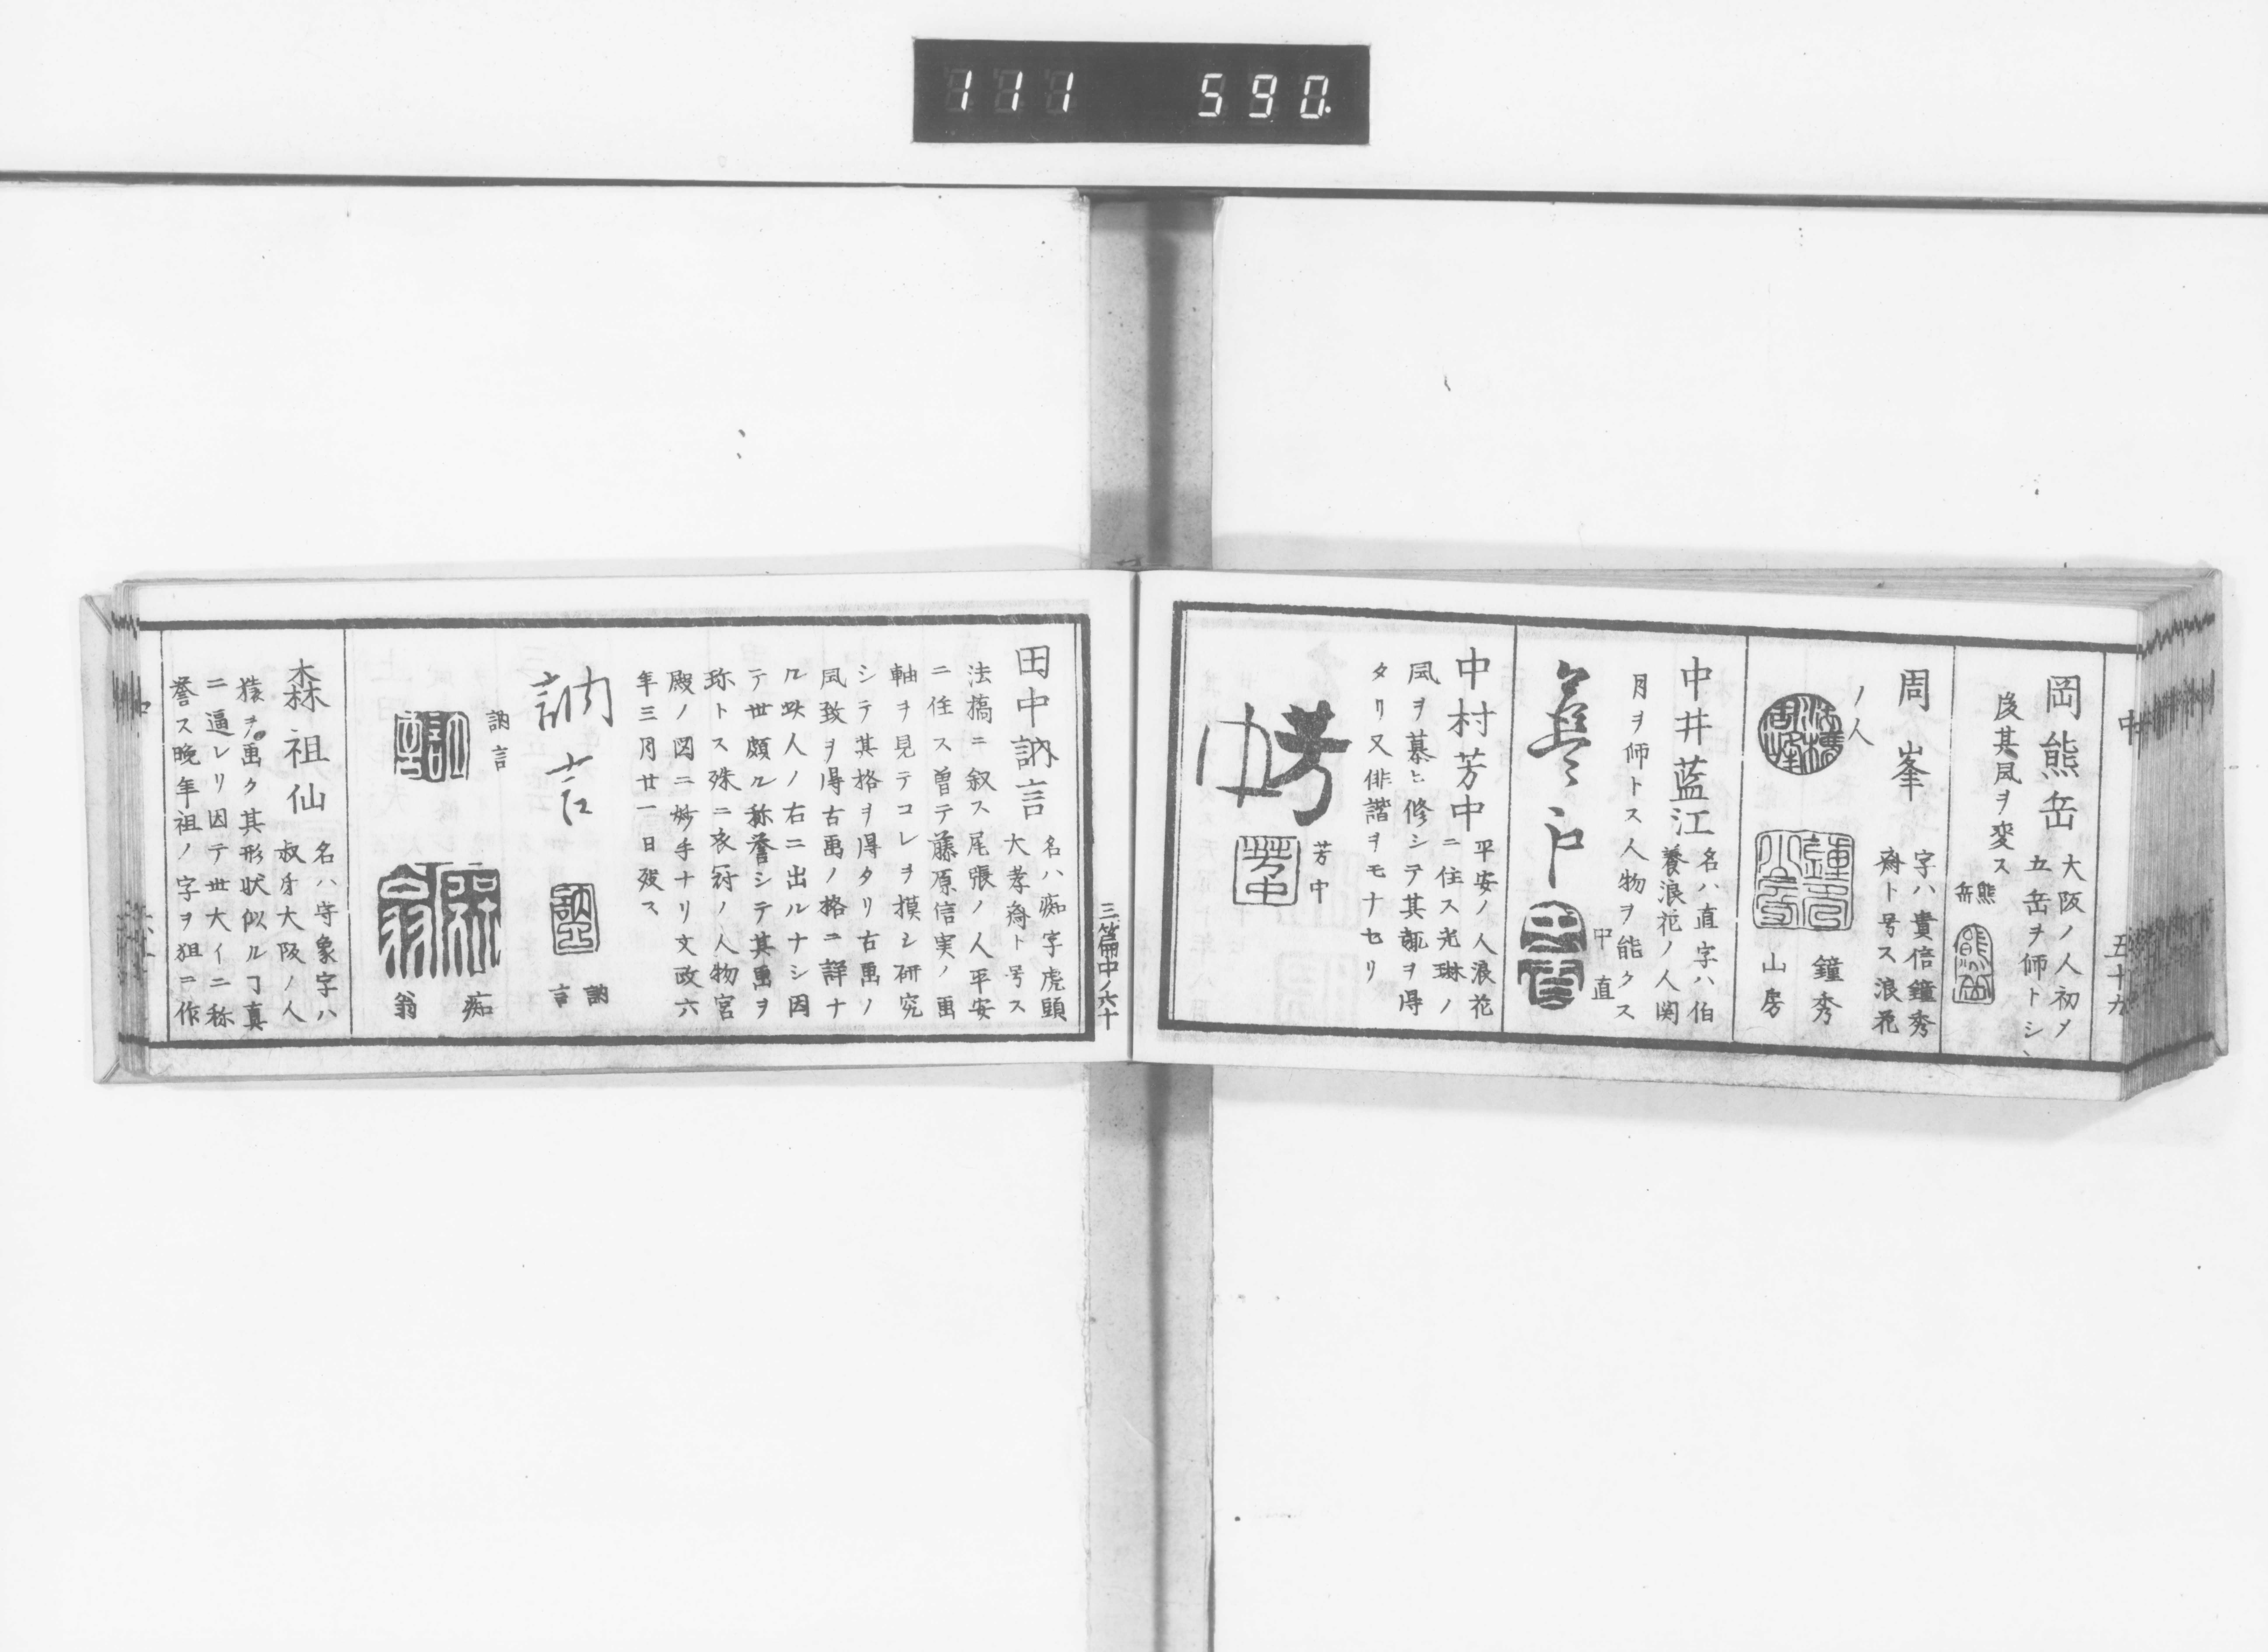 111 590.
中 五十九
岡熊岳 大阪ノ人初メ
五岳ヲ師トシ
後其風ヲ変ス
熊岳
周峯 字ハ貴信鐘秀
斎ト号ス浪花
ノ人
法橋周峰
鐘秀
山房
中井藍江 名ハ直字ハ伯
養浪花ノ人関
月ヲ師トス人物ヲ能クス
藍江
中直
中村芳中 平安ノ人浪花
ニ住ス光琳ノ
風ヲ慕ヒ修シテ其趣ヲ得
タリ又俳諧ヲモナセリ
芳中
芳中
三篇中ノ六十
田中訥言 名ハ痴字虎頭
大孝斎ト号ス
法橋ニ叙ス尾張ノ人平安
ニ住ス曽テ藤原信実ノ画
軸ヲ見テコレヲ摸シ研究
シテ其格ヲ得タリ古画ノ
風致ヲ得古画ノ格ニ詳ナ
ル此人ノ右ニ出ルナシ因
テ世頗ル称誉シテ其画ヲ
珎トス殊ニ衣冠ノ人物宮
殿ノ図ニ妙手ナリ文政六
年三月廿一日歿ス
訥言
訥言
訥言
痴
翁
森祖仙 名ハ守象字ハ
叔牙大阪ノ人
猿ヲ画ク其形状似ルヿ真
ニ逼レリ因テ世大イニ称
誉ス晩年祖ノ字ヲ狙ニ作